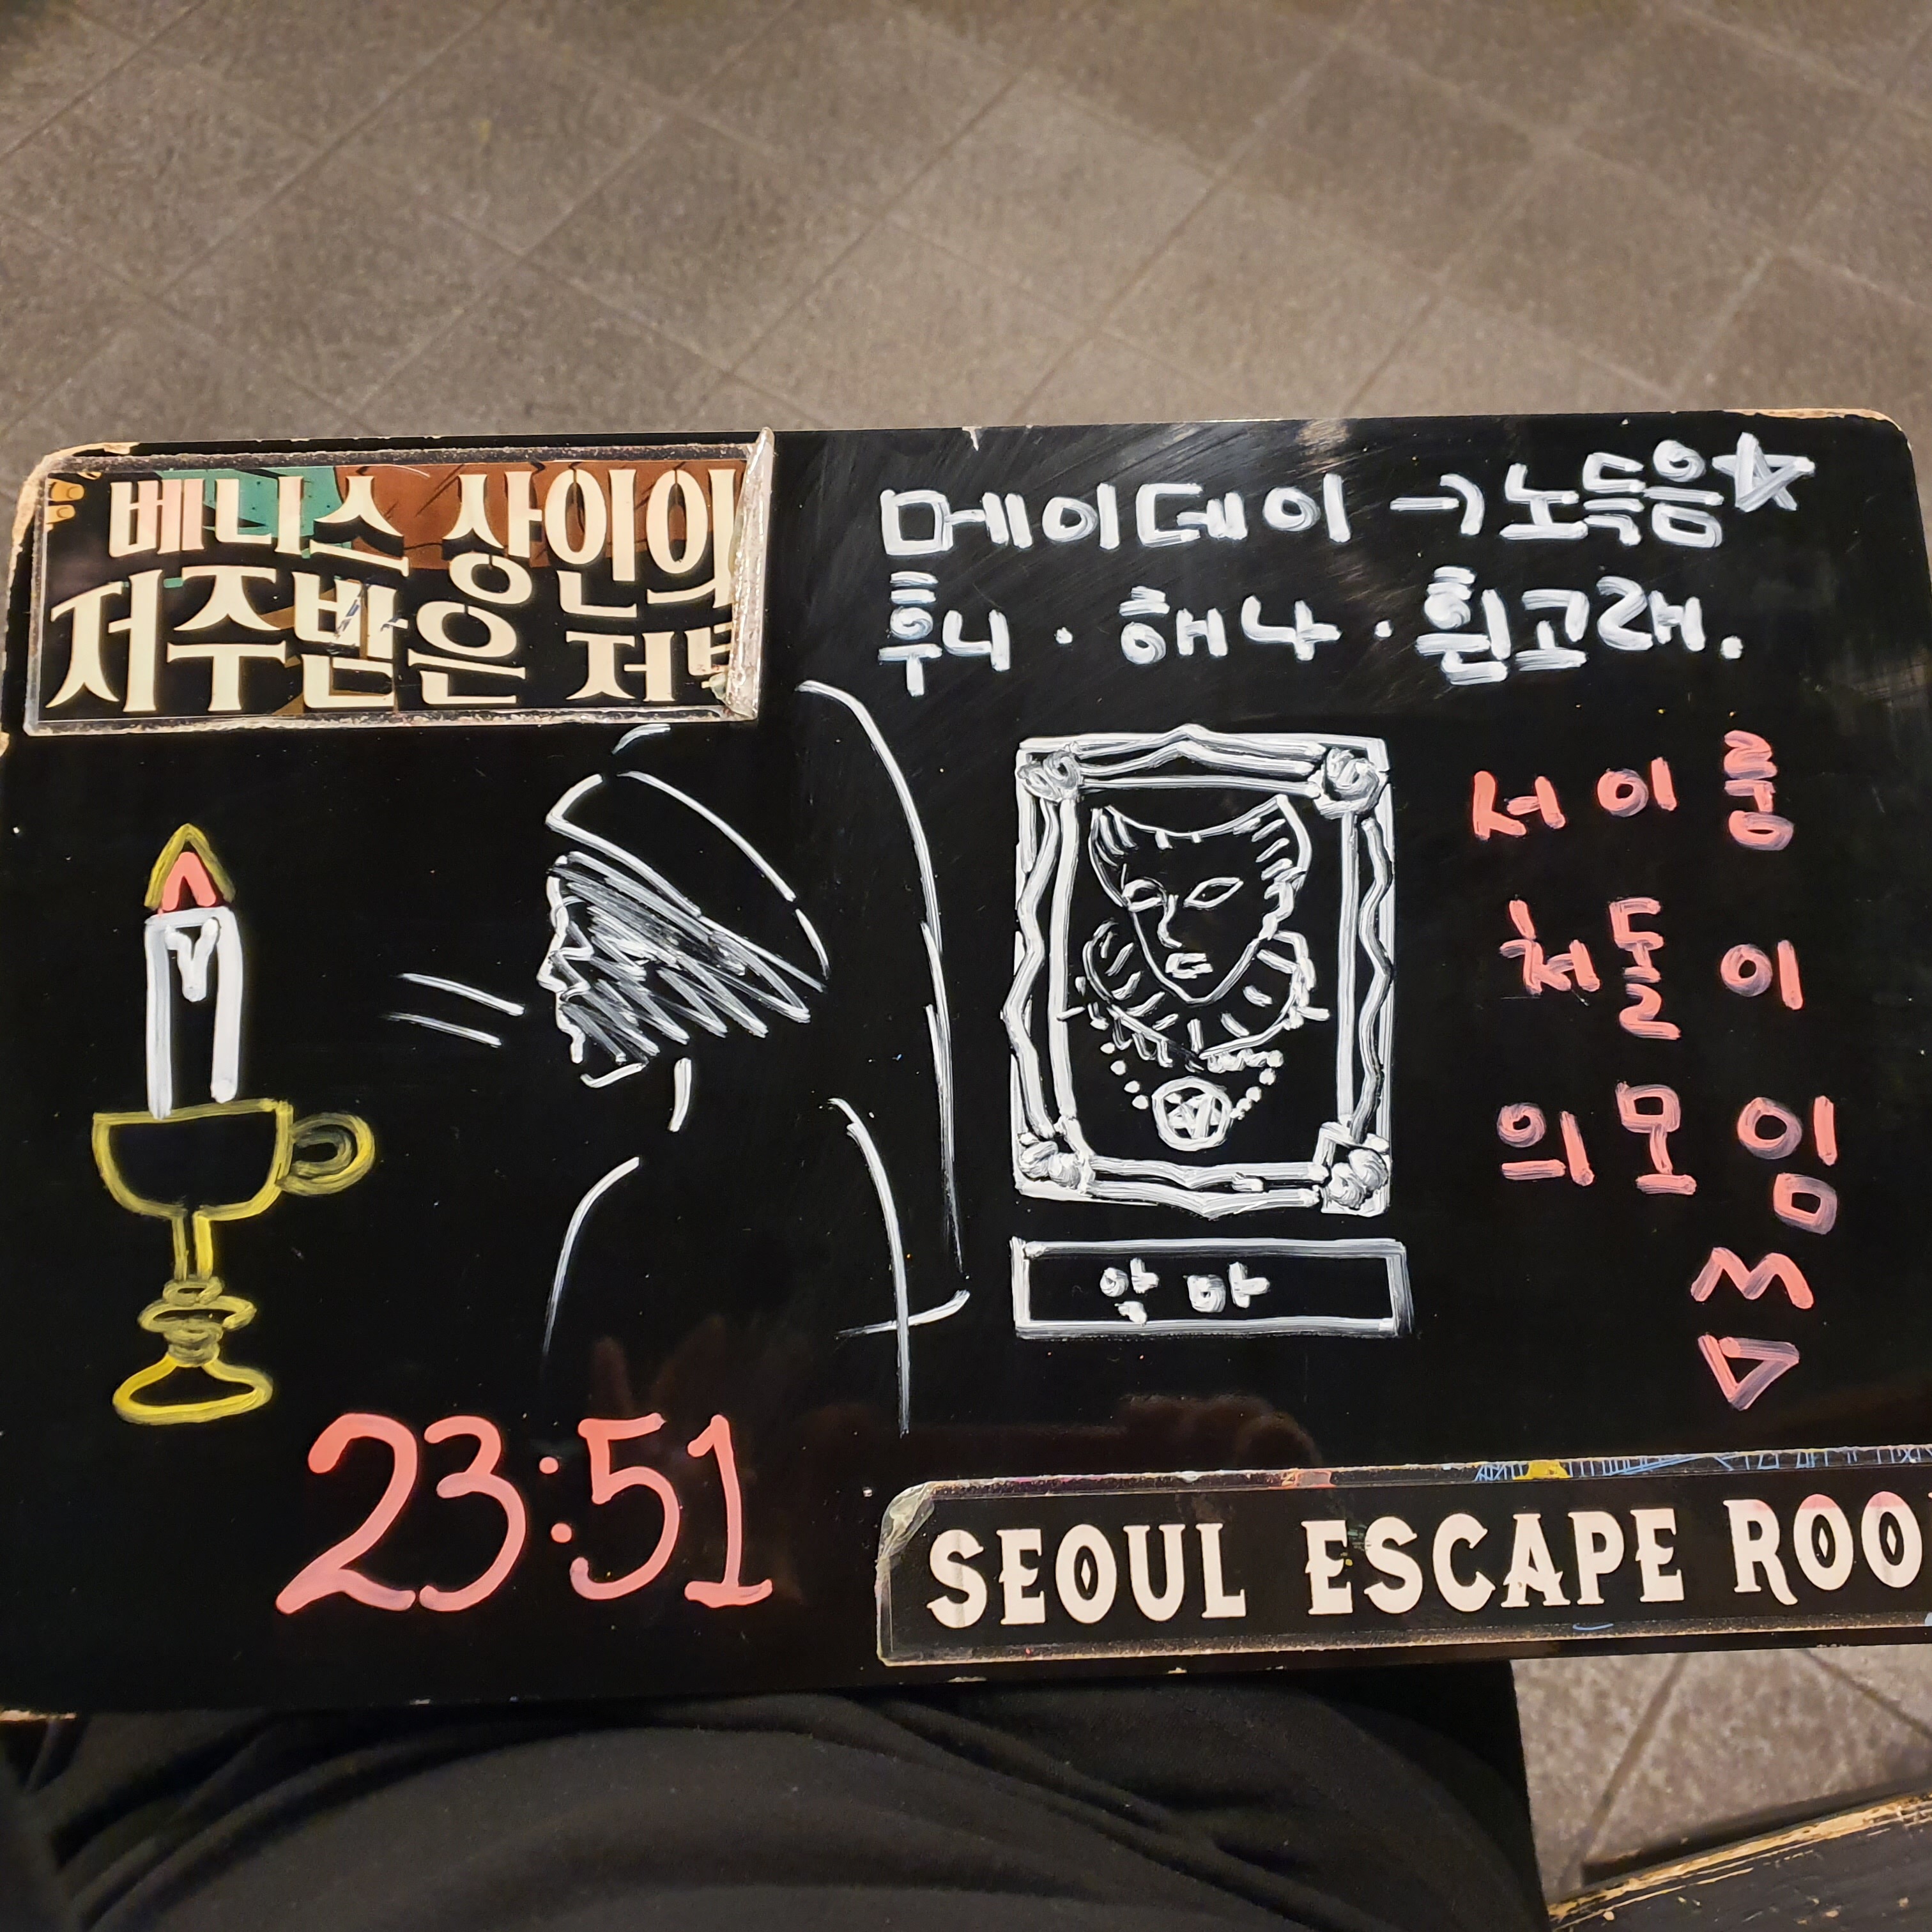 베니스 상인의
저주받은 저녁
메이데이 → 노득음☆
튜니 · 해나 · 흰고래.
서이룽
처돌이
의모임
악마
23:51
SEOUL ESCAPE ROO